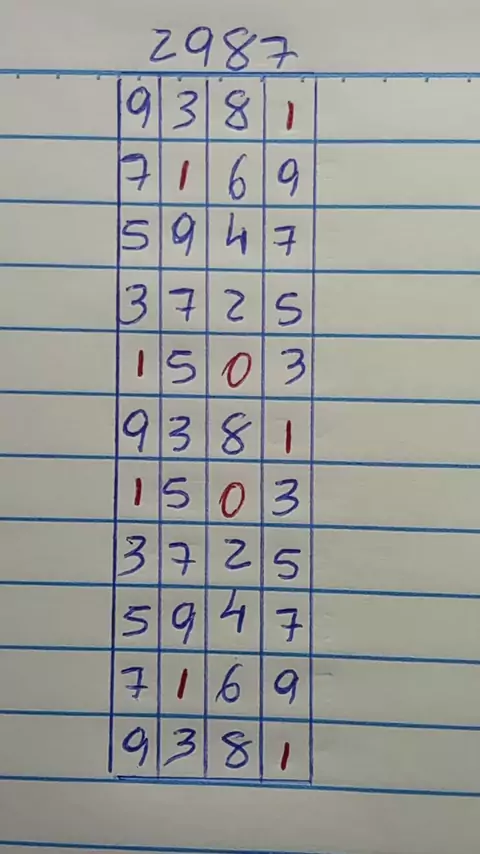 2987
9 3 8 1
7 1 6 9
5 9 4 7
3 7 2 5
1 5 0 3
9 3 8 1
1 5 0 3
3 7 2 5
5 9 4 7
7 1 6 9
9 3 8 1